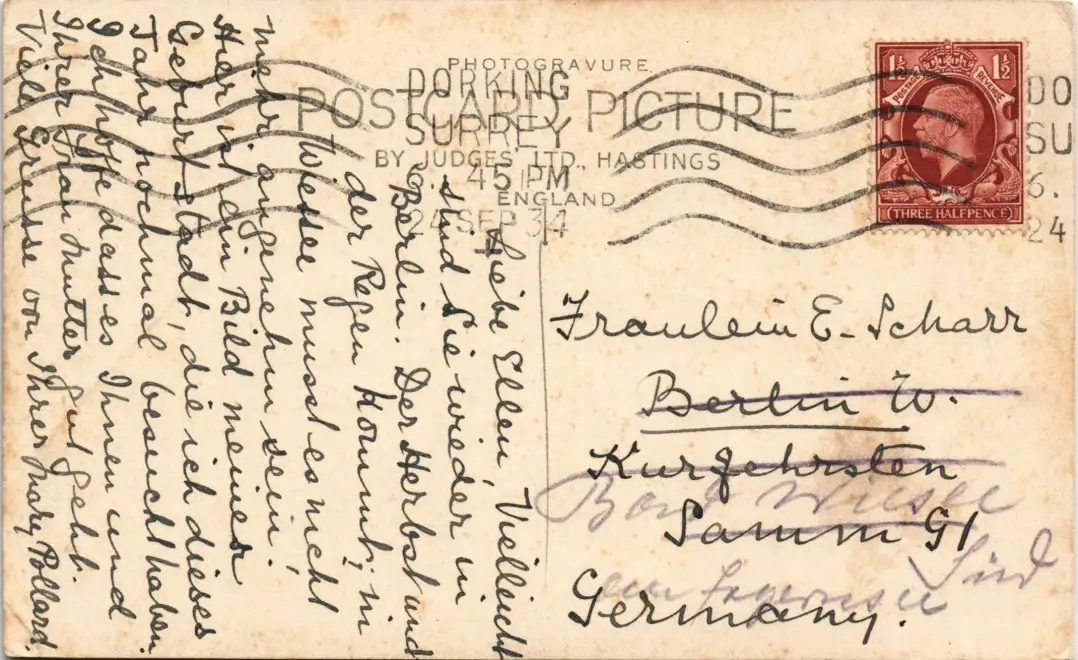 PHOTOGRAVURE
POSTCARD PICTURE
BY JUDGES' LTD., HASTINGS
ENGLAND
DORKING
SURREY
45 PM
24 SEP 34
DO
SU
6.
24
1½ 1½
POSTAGE REVENUE
(THREE HALFPENCE)
Liebe Ellen, Vielleicht
sind Sie wieder in
Berlin. Der Herbst und
der Regen kommt; in
Wiessee musst es nicht
mehr angenehm sein.
Hier ist ein Bild meiner
Geburtstadt, die ich dieses
Jahr nochmal besucht haben
Ich hoffe dass es Ihnen und
Ihrer Frau Mutter gut geht.
Viele Grüsse von Ihrer Mary Pollard.
Fraulein E. Scharr
Berlin W.
Kurfehrsten
Bad Wiessee
Damm 91
Süd
am Tegernsee
Germany.